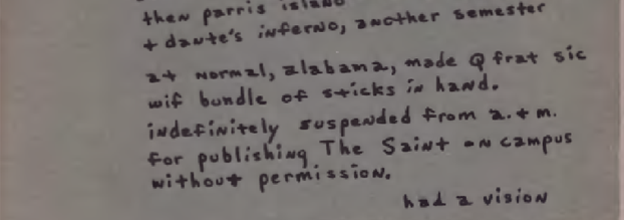 then parris island
+ dante's inferno, another semester
at normal, alabama, made Q frat sic
wif bundle of sticks in hand.
indefinitely suspended from a.+m.
for publishing The Saint on campus
without permission.
had a vision